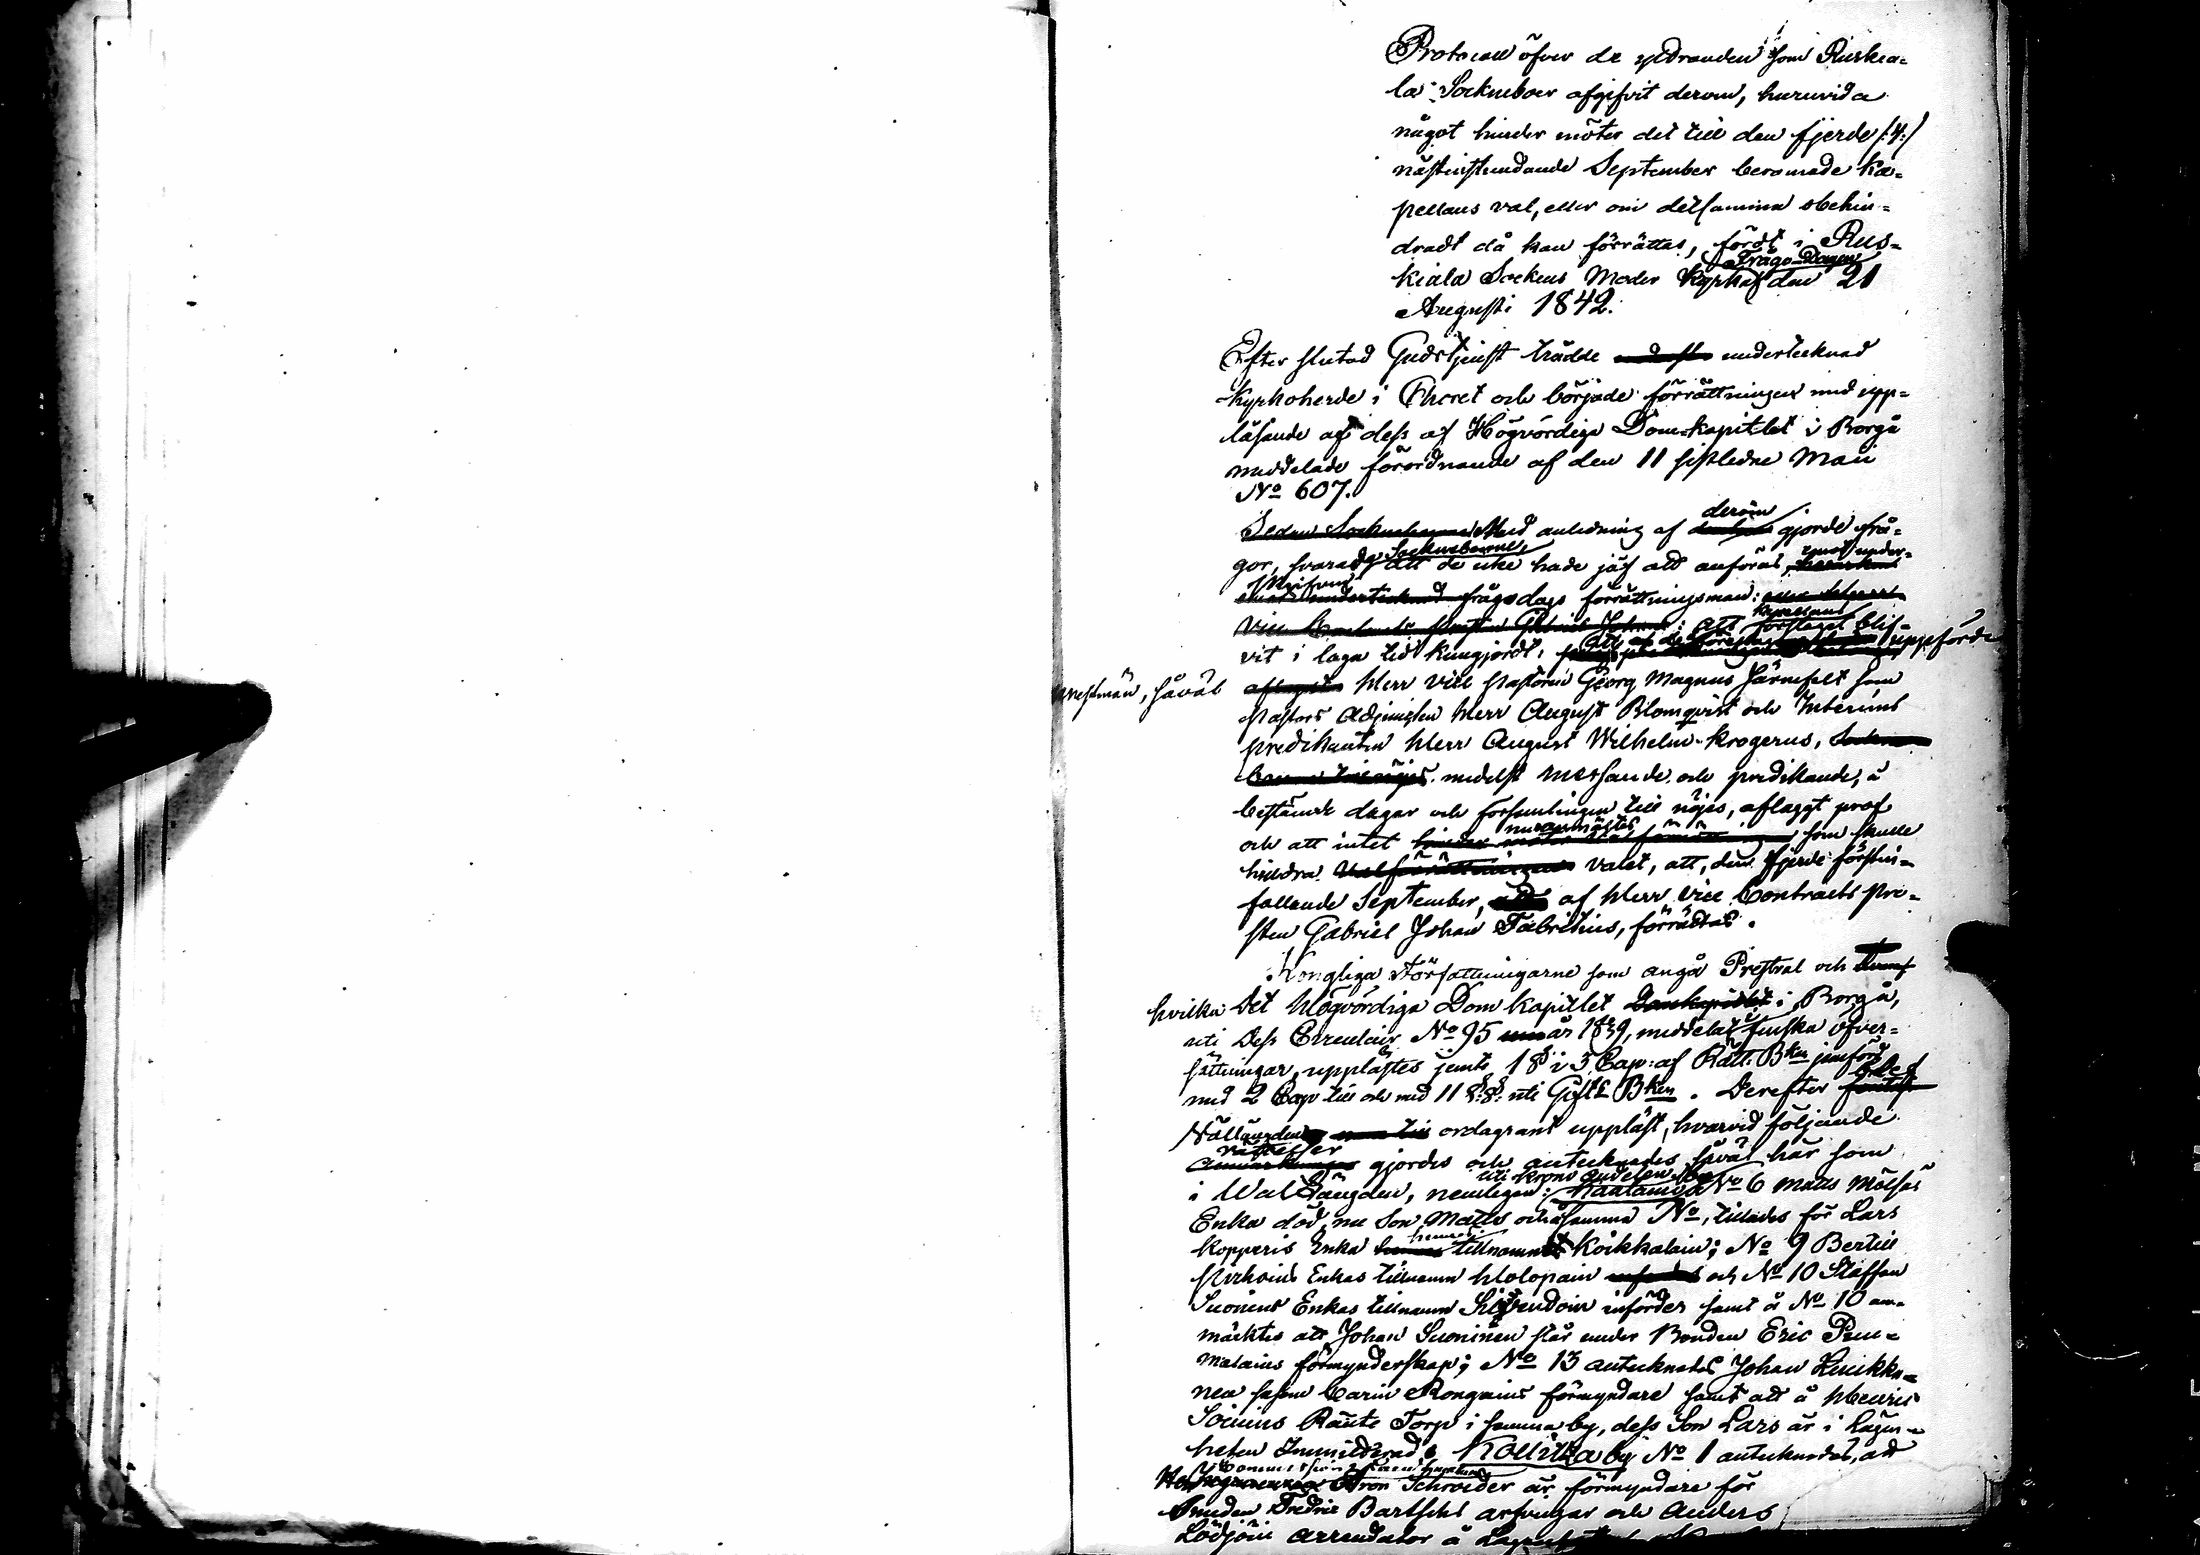 Protocoll öfver de yttranden som Ruskea-
la Sockneboer afgifvit derom, huruvida
något hinder möter det till den fjerde /:4:/
nästinstundande September beramade Ka-
pellans val, eller om detsamma obehin-
dradt då kan förrättas, fördt i Rus-
kiala Sockens Moder Kyrka Frågo-Dagen den 21
Augusti 1842.
Efter slutad Gudstjenst trädde undertecknad
Kyrkoherde i Choret och började förrättningen med upp-
läsande af dess af Högvördiga Dom-kapitlet i Borgå
meddelade förordnande af den 11 sistledne Maii
No 607.
Med anledning af derom gjorde frå-
gor, svarade Sockneboerne, att de icke hade jäf att anföras, emot under-
skrifven frågodags förrättningsman: att Kapellans förslaget blif-
vit i laga tid kungjordt, att de uppeförde
prestmän, såväl Herr vice Pastoren Georg Magnus Järnefelt som
Pastors Adjuncten Herr August Blomqvist och Interims
predikanten Herr August Wilhelm Krogerus,
medelst messande och predikande, å
bestämde dagar och församlingen till nöjes, aflaggt prof
och att intet nu anmältes som skulle
hindra valet, att, den fjerde förstin-
fallande September, af Herr vice Contracts Pro-
sten Gabriel Johan Fabritius, förrättas.
Kongliga Författningarne som angå Prestval och
hvilka Det Högvördiga Dom kapitlet i Borgå,
uti Dess Circulair No 95 år 1839, meddelat finska öfver-
sättningar, upplästes jemte 1 § i 3 Cap: af Rätt. Bken jemförd
med 2 Cap till och med 11 §.§. uti Gift. Bken. Derefter blef
Vällängden ordagrant uppläst, hvarvid följande
rättelser gjordes och antecknades såväl här som
i Wal Längden, nemligen: uti Krono andelen No 6 Matts Mölsäs
Enka död, nu Son Matts och å samma No, tillades för Lars
Kopperis Enka hennes tillnamn Koikkalain; No 9 Bertill
Pirhoins Enkas tillnamn Holopain och No 10 Staffan
Suonins Enkas tillnamn infördes samt å No 10 an-
märktes att Johan Suoninen står under Bonden Eric Pum-
malains förmynderskap; No 13 antecknades Johan
nen såsom Carin Rongains förmyndare samt att å Henric
Soinins Torp i samma by, dess Son Lars är i Lägen-
heten Immitterad. Kollitka by No 1 antecknades, att
Aron Schroeder är förmyndare för
Fredric Bartschs arfvingar och Anders
Lödjöin arrendator å